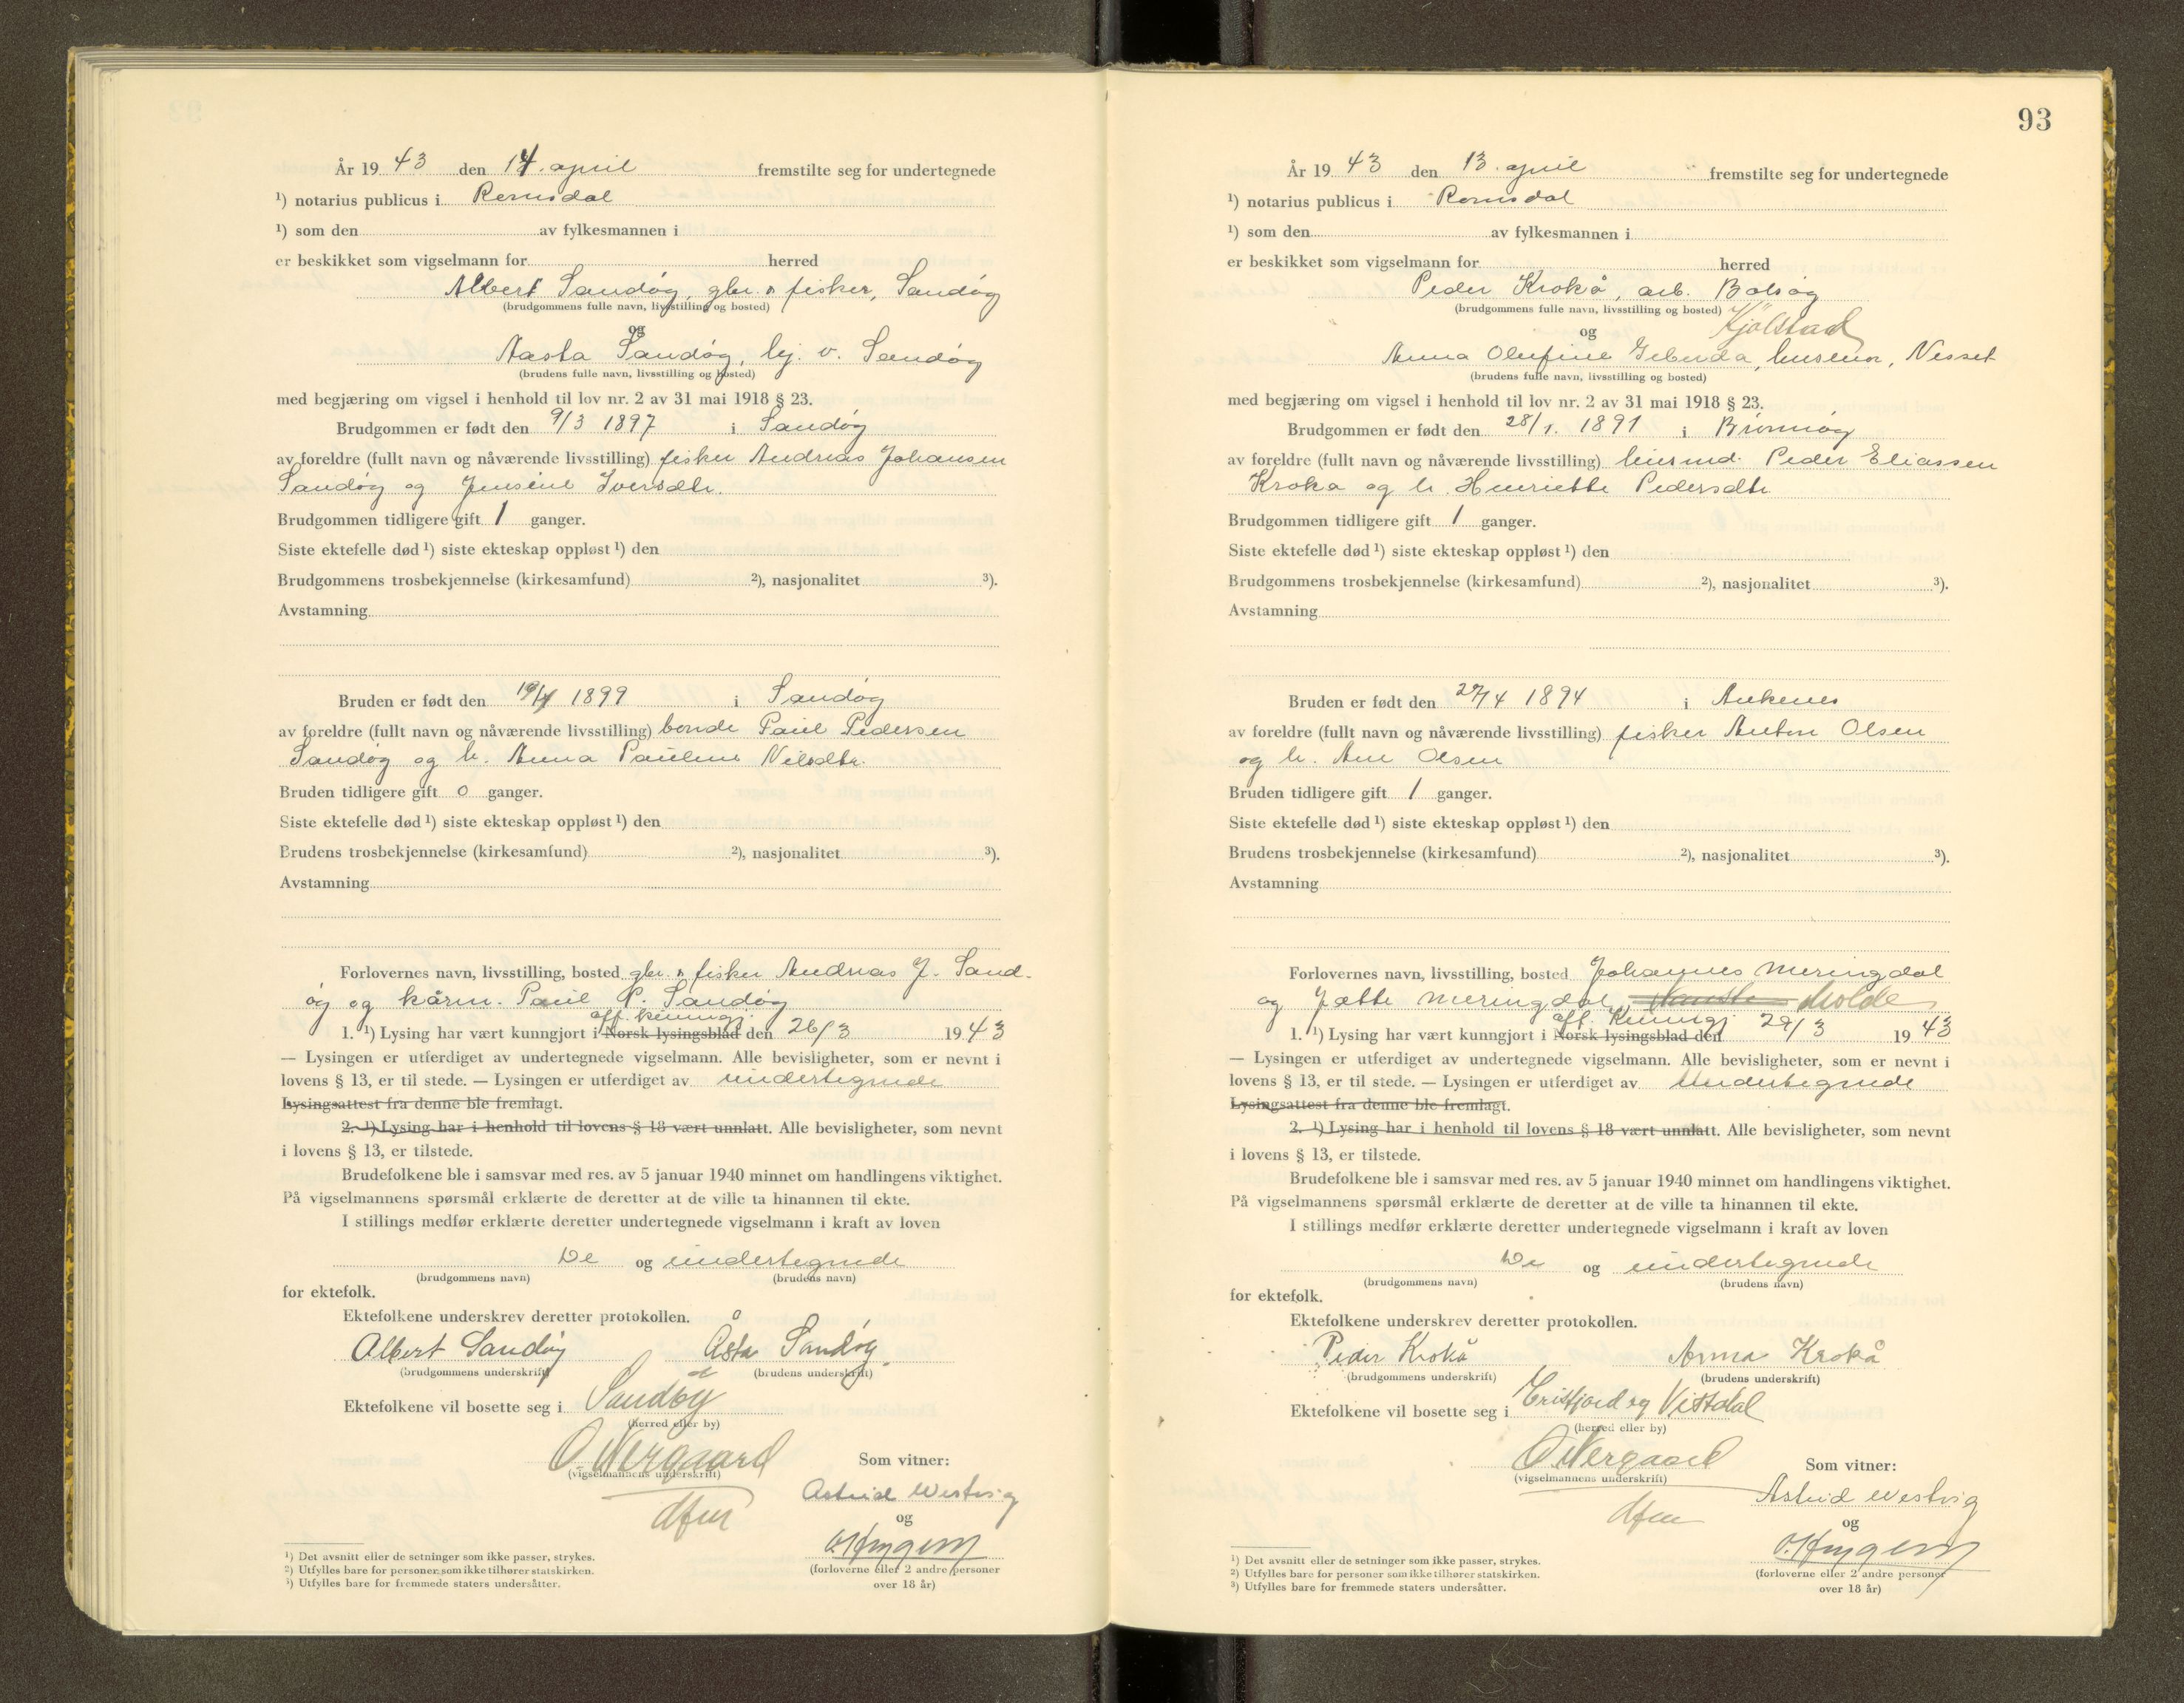 År 19 43 den 14. april fremstilte seg for undertegnede
¹) notarius publicus i Romsdal
¹) som den av fylkesmannen i
er beskikket som vigselmann for herred
Albert Sandøy, gbr. & fisker, Sandøy
(brudgommens fulle navn, livsstilling og bosted)
og
Aasta Sandøy, hj. v. Sandøy
(brudens fulle navn, livsstilling og bosted)
med begjæring om vigsel i henhold til lov nr. 2 av 31 mai 1918 § 23.
Brudgommen er født den 9/3 1897 i Sandøy
av foreldre (fullt navn og nåværende livsstilling) fisker Andreas Johansen
Sandøy og Jensine Iversdtr.
Brudgommen tidligere gift 1 ganger.
Siste ektefelle død ¹) siste ekteskap oppløst ¹) den
Brudgommens trosbekjennelse (kirkesamfund) ²), nasjonalitet ³).
Avstamning
Bruden er født den 1899 i Sandøy
av foreldre (fullt navn og nåværende livsstilling) bonde Paul Pedersen
Sandøy og h. Anna Pauline Nilsdtr.
Bruden tidligere gift 0 ganger.
Siste ektefelle død ¹) siste ekteskap oppløst ¹) den
Brudens trosbekjennelse (kirkesamfund) ²), nasjonalitet ³).
Avstamning
Forlovernes navn, livsstilling, bosted gbr. & fisker Andreas J. Sand-
øy og kårm. Paul P. Sandøy
off. kunngj.
1. ¹) Lysing har vært kunngjort i Norsk lysingsblad den 26/3 19 43
— Lysingen er utferdiget av undertegnede vigselmann. Alle bevisligheter, som er nevnt i
lovens § 13, er til stede. — Lysingen er utferdiget av undertegnede
Lysingsattest fra denne ble fremlagt.
2. ¹) Lysing har i henhold til lovens § 18 vært unnlatt. Alle bevisligheter, som nevnt
i lovens § 13, er tilstede.
Brudefolkene ble i samsvar med res. av 5 januar 1940 minnet om handlingens viktighet.
På vigselmannens spørsmål erklærte de deretter at de ville ta hinannen til ekte.
I stillings medfør erklærte deretter undertegnede vigselmann i kraft av loven
De og undertegnede
(brudgommens navn) (brudens navn)
for ektefolk.
Ektefolkene underskrev deretter protokollen.
Albert Sandøy Åsta Sandøy
(brudgommens underskrift) (brudens underskrift)
Ektefolkene vil bosette seg i Sandøy
(herred eller by)
O Nergaard
(vigselmannens underskrift)
dfm
Som vitner:
Astrid Westvig
og
(forloverne eller 2 andre personer
over 18 år)
¹) Det avsnitt eller de setninger som ikke passer, strykes.
²) Utfylles bare for personer som ikke tilhører statskirken.
³) Utfylles bare for fremmede staters undersåtter.
93
År 19 43 den 13. april fremstilte seg for undertegnede
¹) notarius publicus i Romsdal
¹) som den av fylkesmannen i
er beskikket som vigselmann for herred
Peder Krokå, arb. Bolsøy
(brudgommens fulle navn, livsstilling og bosted)
og Kjølstad
Anna Olufine husmor, Nesset
(brudens fulle navn, livsstilling og bosted)
med begjæring om vigsel i henhold til lov nr. 2 av 31 mai 1918 § 23.
Brudgommen er født den 28/1. 1891 i Brønnøy
av foreldre (fullt navn og nåværende livsstilling) husmd. Peder Eliassen
Kroka og h. Henriette Pedersdtr.
Brudgommen tidligere gift 1 ganger.
Siste ektefelle død ¹) siste ekteskap oppløst ¹) den
Brudgommens trosbekjennelse (kirkesamfund) ²), nasjonalitet ³).
Avstamning
Bruden er født den 27/4 1894 i Ankenes
av foreldre (fullt navn og nåværende livsstilling) fisker Anton Olsen
og h. Ane Olsen
Bruden tidligere gift 1 ganger.
Siste ektefelle død ¹) siste ekteskap oppløst ¹) den
Brudens trosbekjennelse (kirkesamfund) ²), nasjonalitet ³).
Avstamning
Forlovernes navn, livsstilling, bosted Johannes Meringdal
og Jette Meringdal, Molde
off. Kunngj.
1. ¹) Lysing har vært kunngjort i Norsk lysingsblad den 29/3 19 43
— Lysingen er utferdiget av undertegnede vigselmann. Alle bevisligheter, som er nevnt i
lovens § 13, er til stede. — Lysingen er utferdiget av Undertegnede
Lysingsattest fra denne ble fremlagt.
2. ¹) Lysing har i henhold til lovens § 18 vært unnlatt. Alle bevisligheter, som nevnt
i lovens § 13, er tilstede.
Brudefolkene ble i samsvar med res. av 5 januar 1940 minnet om handlingens viktighet.
På vigselmannens spørsmål erklærte de deretter at de ville ta hinannen til ekte.
I stillings medfør erklærte deretter undertegnede vigselmann i kraft av loven
De og undertegnede
(brudgommens navn) (brudens navn)
for ektefolk.
Ektefolkene underskrev deretter protokollen.
Peder Krokå Anna Krokå
(brudgommens underskrift) (brudens underskrift)
Ektefolkene vil bosette seg i Eristfjord og Vistdal
(herred eller by)
O Nergaard
(vigselmannens underskrift)
dfm
Som vitner:
Astrid Westvig
og
(forloverne eller 2 andre personer
over 18 år)
¹) Det avsnitt eller de setninger som ikke passer, strykes.
²) Utfylles bare for personer som ikke tilhører statskirken.
³) Utfylles bare for fremmede staters undersåtter.